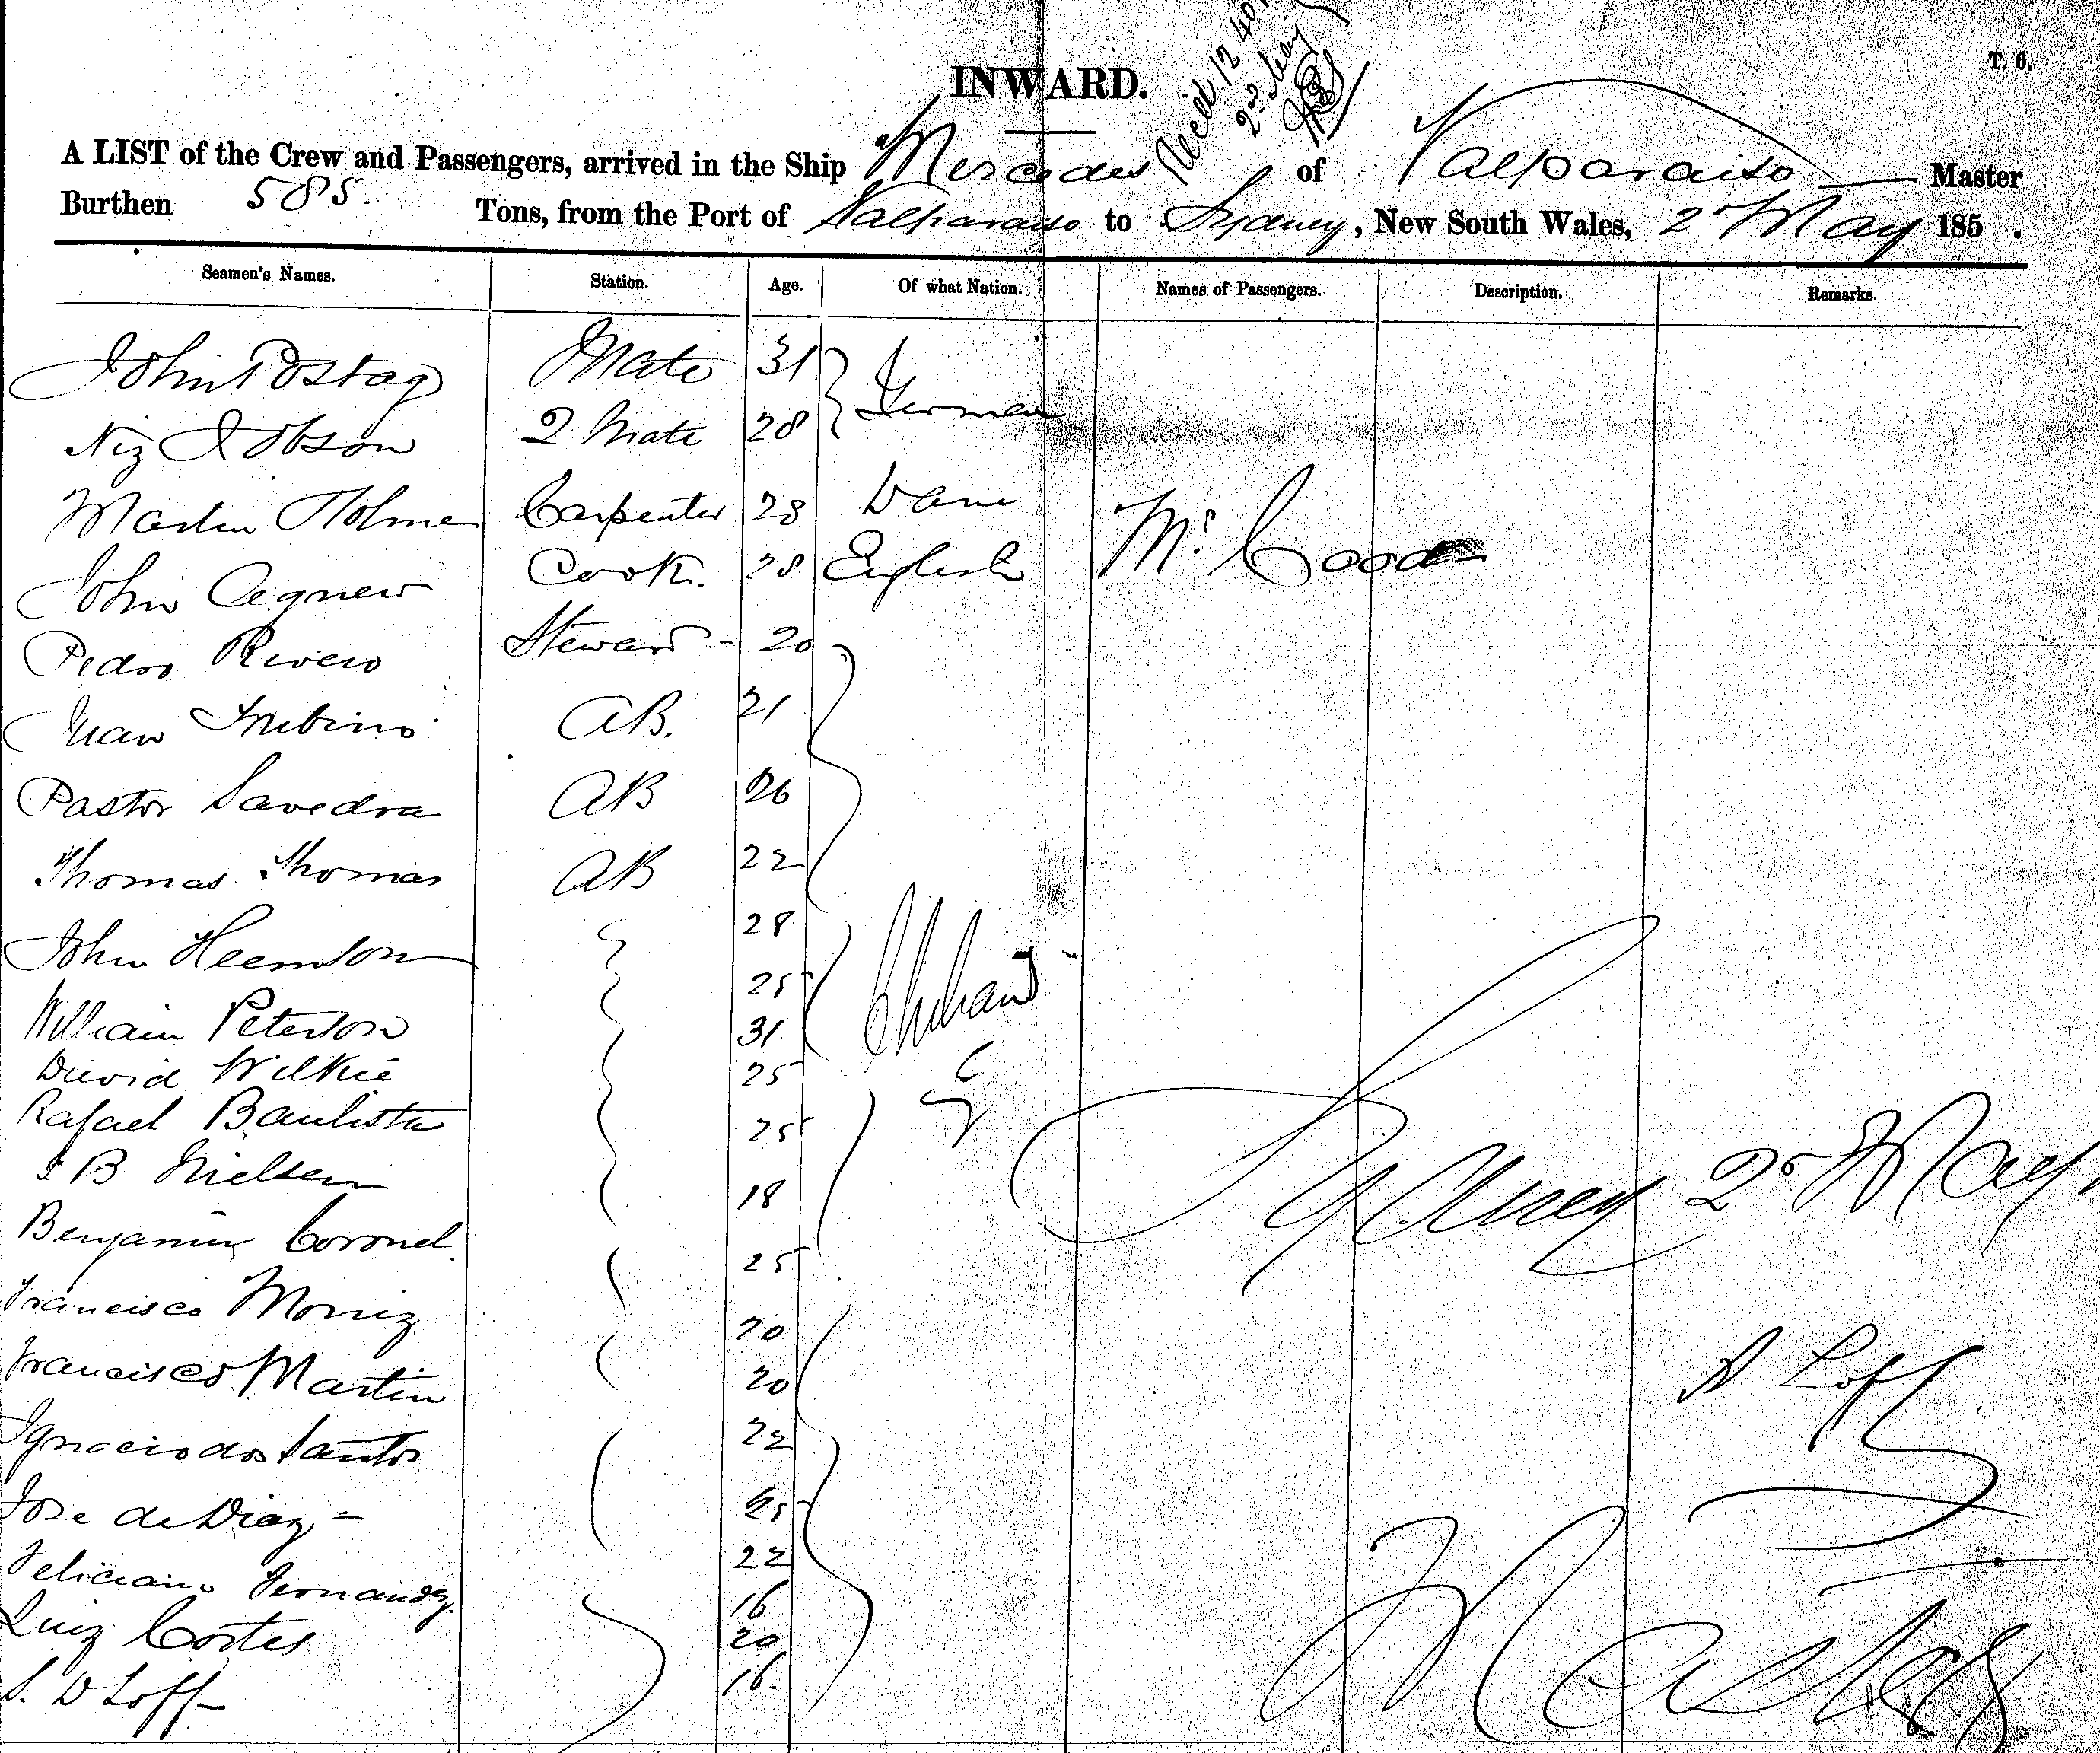 T. 6.
INWARD.
Recd 12 40
2d May
A LIST of the Crew and Passengers, arrived in the Ship Mercedes of Valparaiso Master
Burthen 585. Tons, from the Port of Valparaiso to Sydney, New South Wales, 2d May 185 .
Seamen's Names. Station. Age. Of what Nation. Names of Passengers. Description. Remarks.
John Postag Mate 31 German
Niz Jobson 2 Mate 28
Martin Holme Carpenter 28 Dane
John Agnew Cook. 28 English Mrs Good
Pedro Rivero Steward - 20
Juan Trubino AB. 21
Pastor Savedra AB 26
Thomas Thomas AB 22
John 28
William Peterson 25
David Wilkie 31
Rafael Bautista 25
J B Nielsen 25
Benjamin Coronel. 18
Sydney 2d May
Francisco 25
Francisco Martin 20
A Loff
Ignacio dos Santos 20
Jose de Diaz - 22
Feliciano Fernandez. 22
Luiz Cortes 16
20
S. D Loff 16.
Master